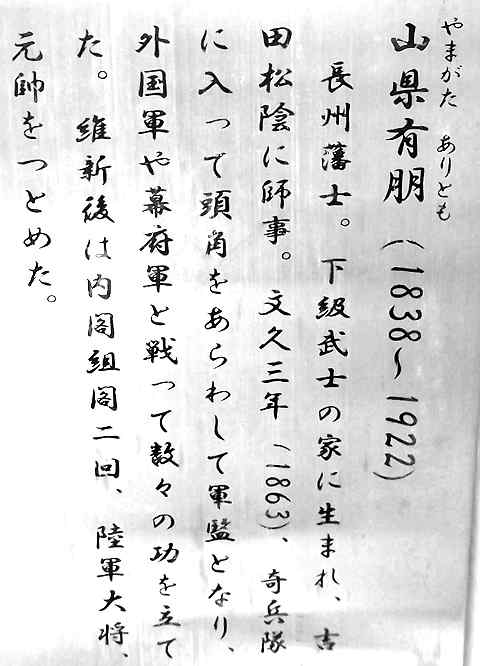 やまがた ありとも
山県有朋(1838～1922)
長州藩士。下級武士の家に生まれ、吉
田松陰に師事。文久三年(1863)、奇兵隊
に入って頭角をあらわして軍監となり、
外国軍や幕府軍と戦って数々の功を立て
た。維新後は内閣組閣二回、陸軍大将、
元帥をつとめた。